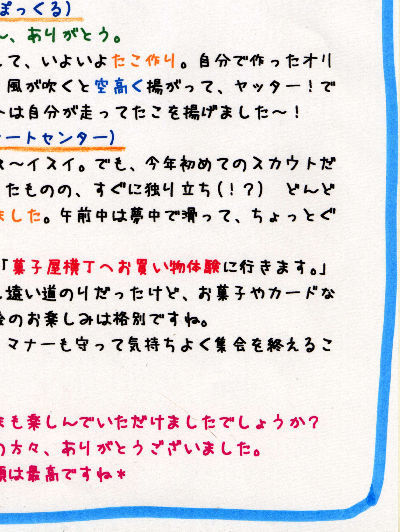 ぽっくる)
～、ありがとう。
して、いよいよたこ作り。自分で作ったオリ
風が吹くと空高く揚がって、ヤッター！で
トは自分が走ってたこを揚げました～！
ートセンター)
ス～イスイ。でも、今年初めてのスカウトだ
たものの、すぐに独り立ち(！？)　どんど
ました。午前中は夢中で滑って、ちょっとぐ
「菓子屋横丁へお買い物体験に行きます。」
し遠い道のりだったけど、お菓子やカードな
のお楽しみは格別ですね。
マナーも守って気持ちよく集会を終えるこ
も楽しんでいただけましたでしょうか？
の方々、ありがとうございました。
顔は最高ですね*